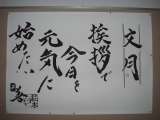 文月
挨拶で
今日を
元気に
始めたい